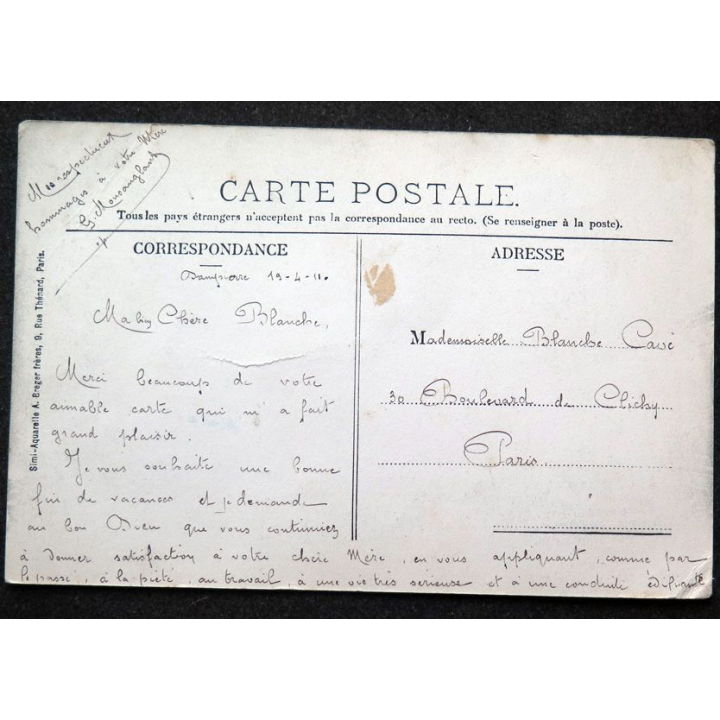 Mes respectueux
hommages à votre Mère
CARTE POSTALE.
Tous les pays étrangers n'acceptent pas la correspondance au recto. (Se renseigner à la poste).
CORRESPONDANCE
Dampierre 19-4-11.
Ma bien Chère Blanche,
Merci beaucoup de votre
aimable carte qui m'a fait
grand plaisir.
Je vous souhaite une bonne
fin de vacances et je demande
au bon Dieu que vous continuiez
à donner satisfaction à votre chère Mère, en vous appliquant, comme par
le passé, à la piété, au travail, à une vie très sérieuse et à une conduite édifiante
ADRESSE
Mademoiselle Blanche Cavé
30 Boulevard de Clichy
Paris
Simi-Aquarelle A. Breger frères, 9, Rue Thénard, Paris.